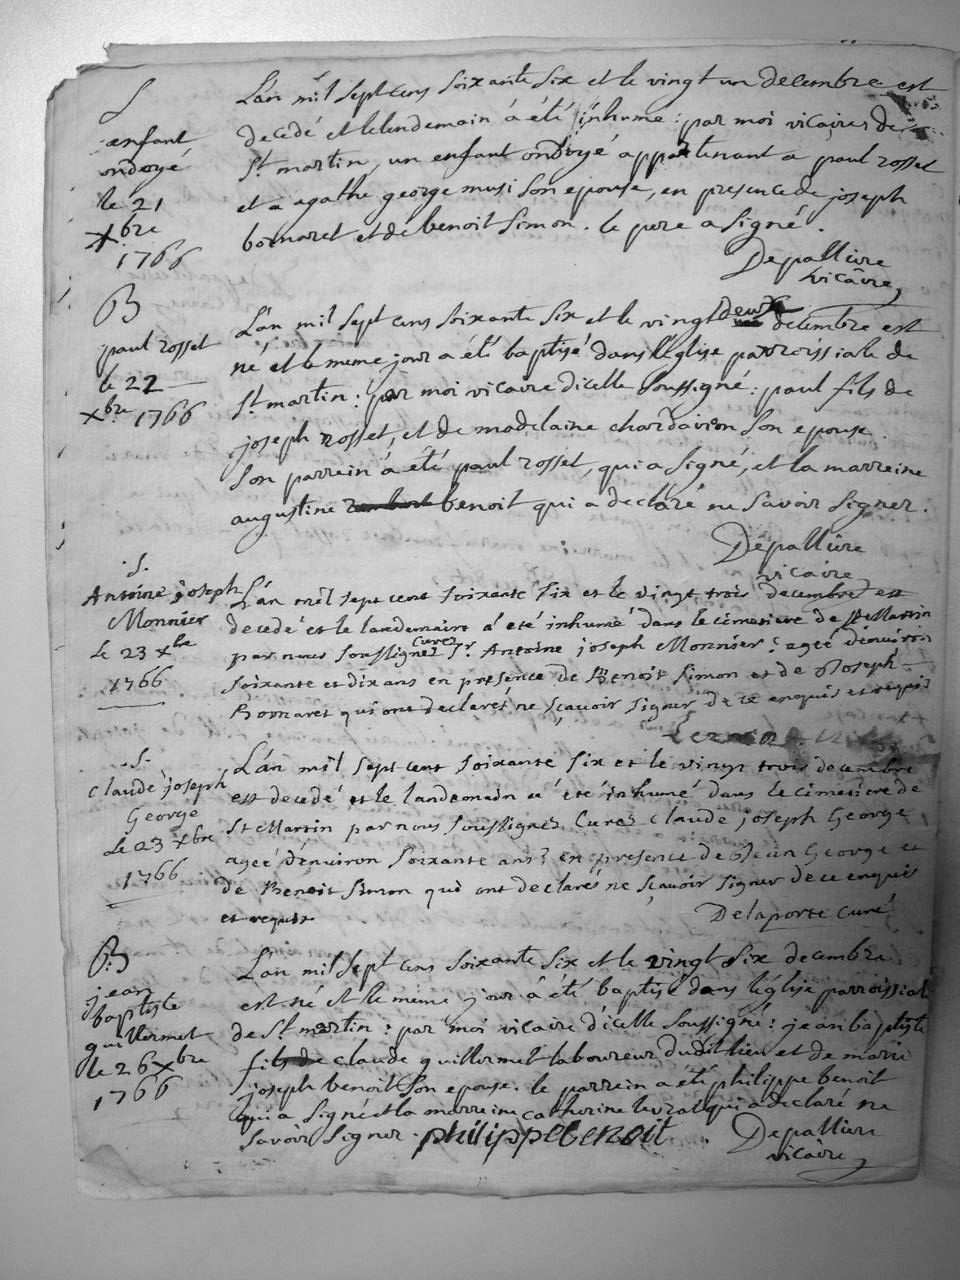 S
enfant
ondoyé
le 21
Xbre
1766
L'an mil sept cens soixante six et le vingt un decembre est
decedé et le lendemain à été inhumé : par moi vicaire de
St martin, un enfant ondoyé appartenant a paul rosset
et a agathe george musi son epouse, en presence de joseph
bornaret et de benoit simon. le pere a signé.
Depalliere
vicaire
B
paul rosset
le 22
Xbre 1766
L'an mil sept cens soixante six et le vingt deux decembre est
né et le meme jour a été baptisé dans l'église parroissiale de
St martin : par moi vicaire d'icelle soussigné : paul fils de
joseph rosset, et de madelaine chardavion son epouse.
son parrein à été paul rosset, qui a signé, et la marreine
augustine benoit qui a declaré ne savoir signer.
Depalliere
vicaire
S.
Antoine joseph
Monnier
Le 23 Xbre
1766
L'an mil sept cent soixante six et le vingt trois decembre est
decedé et le landemain a été inhumé dans le cimetiere de St Martin
par nous soussignez curez Sr. Antoine joseph Monnier : ageé d'environ
soixante et dix ans en présence de Benoit Simon et de Joseph
Bornaret qui ont declarés ne sçavoir signer de ce enquis et requis
S.
Claude joseph
George
Le 23 Xbre
1766
L'an mil sept cent soixante six et le vingt trois decembre
est decedé et le landemain a été inhumé dans le cimetiere de
St Martin par nous soussignez Curez Claude joseph George
ageé d'environ soixante ans : en presence de Jean George et
de Benoit Simon qui ont declarés ne sçavoir signer de ce enquis
et requis
Delaporte curé
B
jean
baptiste
quillermet
le 26 Xbre
1766
L'an mil sept cens soixante six et le vingt six decembre
est né et le meme jour à été baptisé dans l'église parroissial
de St martin : par moi vicaire d'icelle soussigné : jean baptiste
fils de claude quillermet laboureur dudit lieu et de marie
joseph benoit son epouse. le parrein a été philippe benoit
qui a signé et la marreine catherine levrat qui a declaré ne
savoir signer. philippe benoit
Depalliere
vicaire